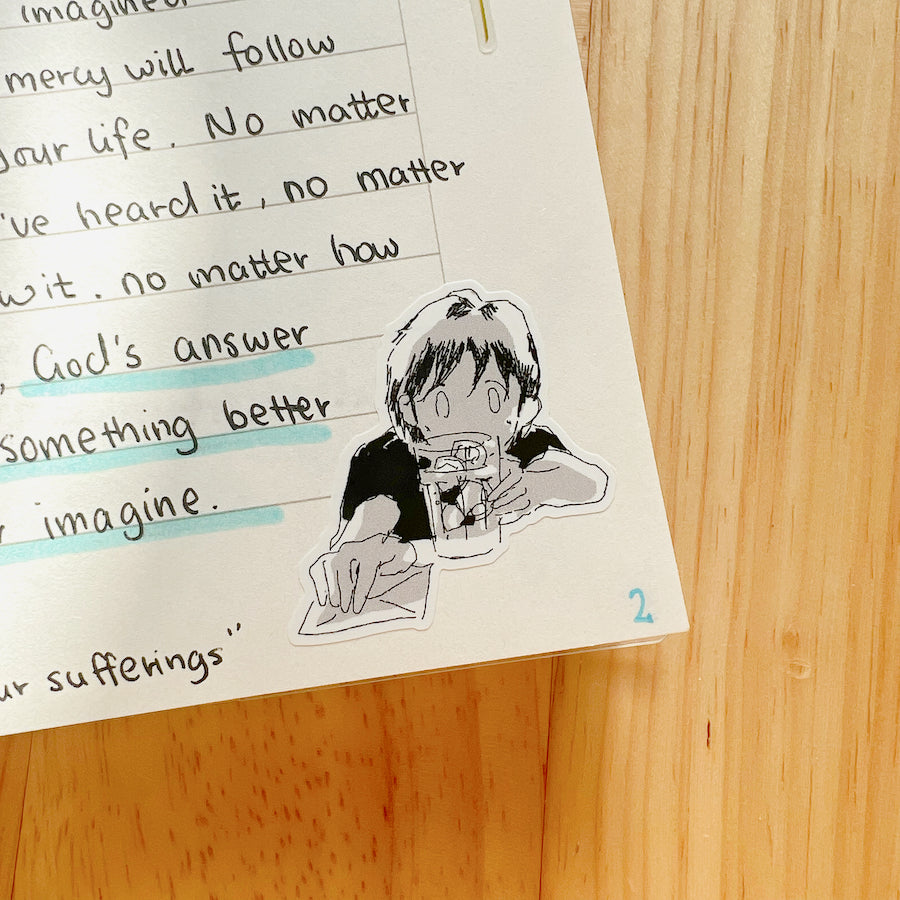 imagined
mercy will follow
your life. No matter
've heard it, no matter
w it. no matter how
, God's answer
something better
r imagine.
2
ur sufferings"